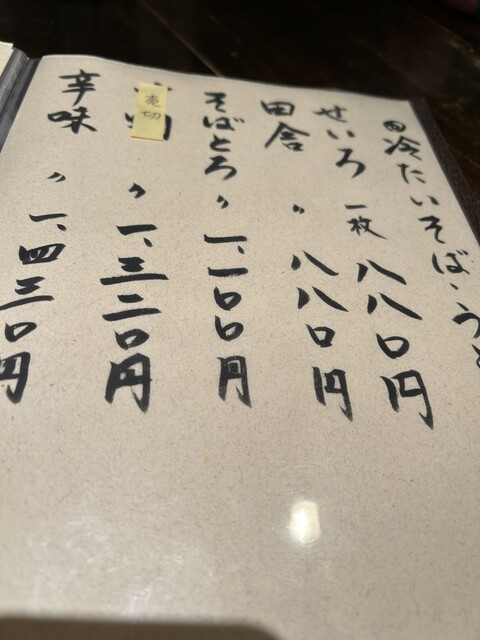 冷たいそば・う
せいろ 一枚 八八〇円
田舎 〃 八八〇円
そばとろ 〃 一、一〇〇円
売切 〃 一、三二〇円
辛味 〃 一、四三〇円